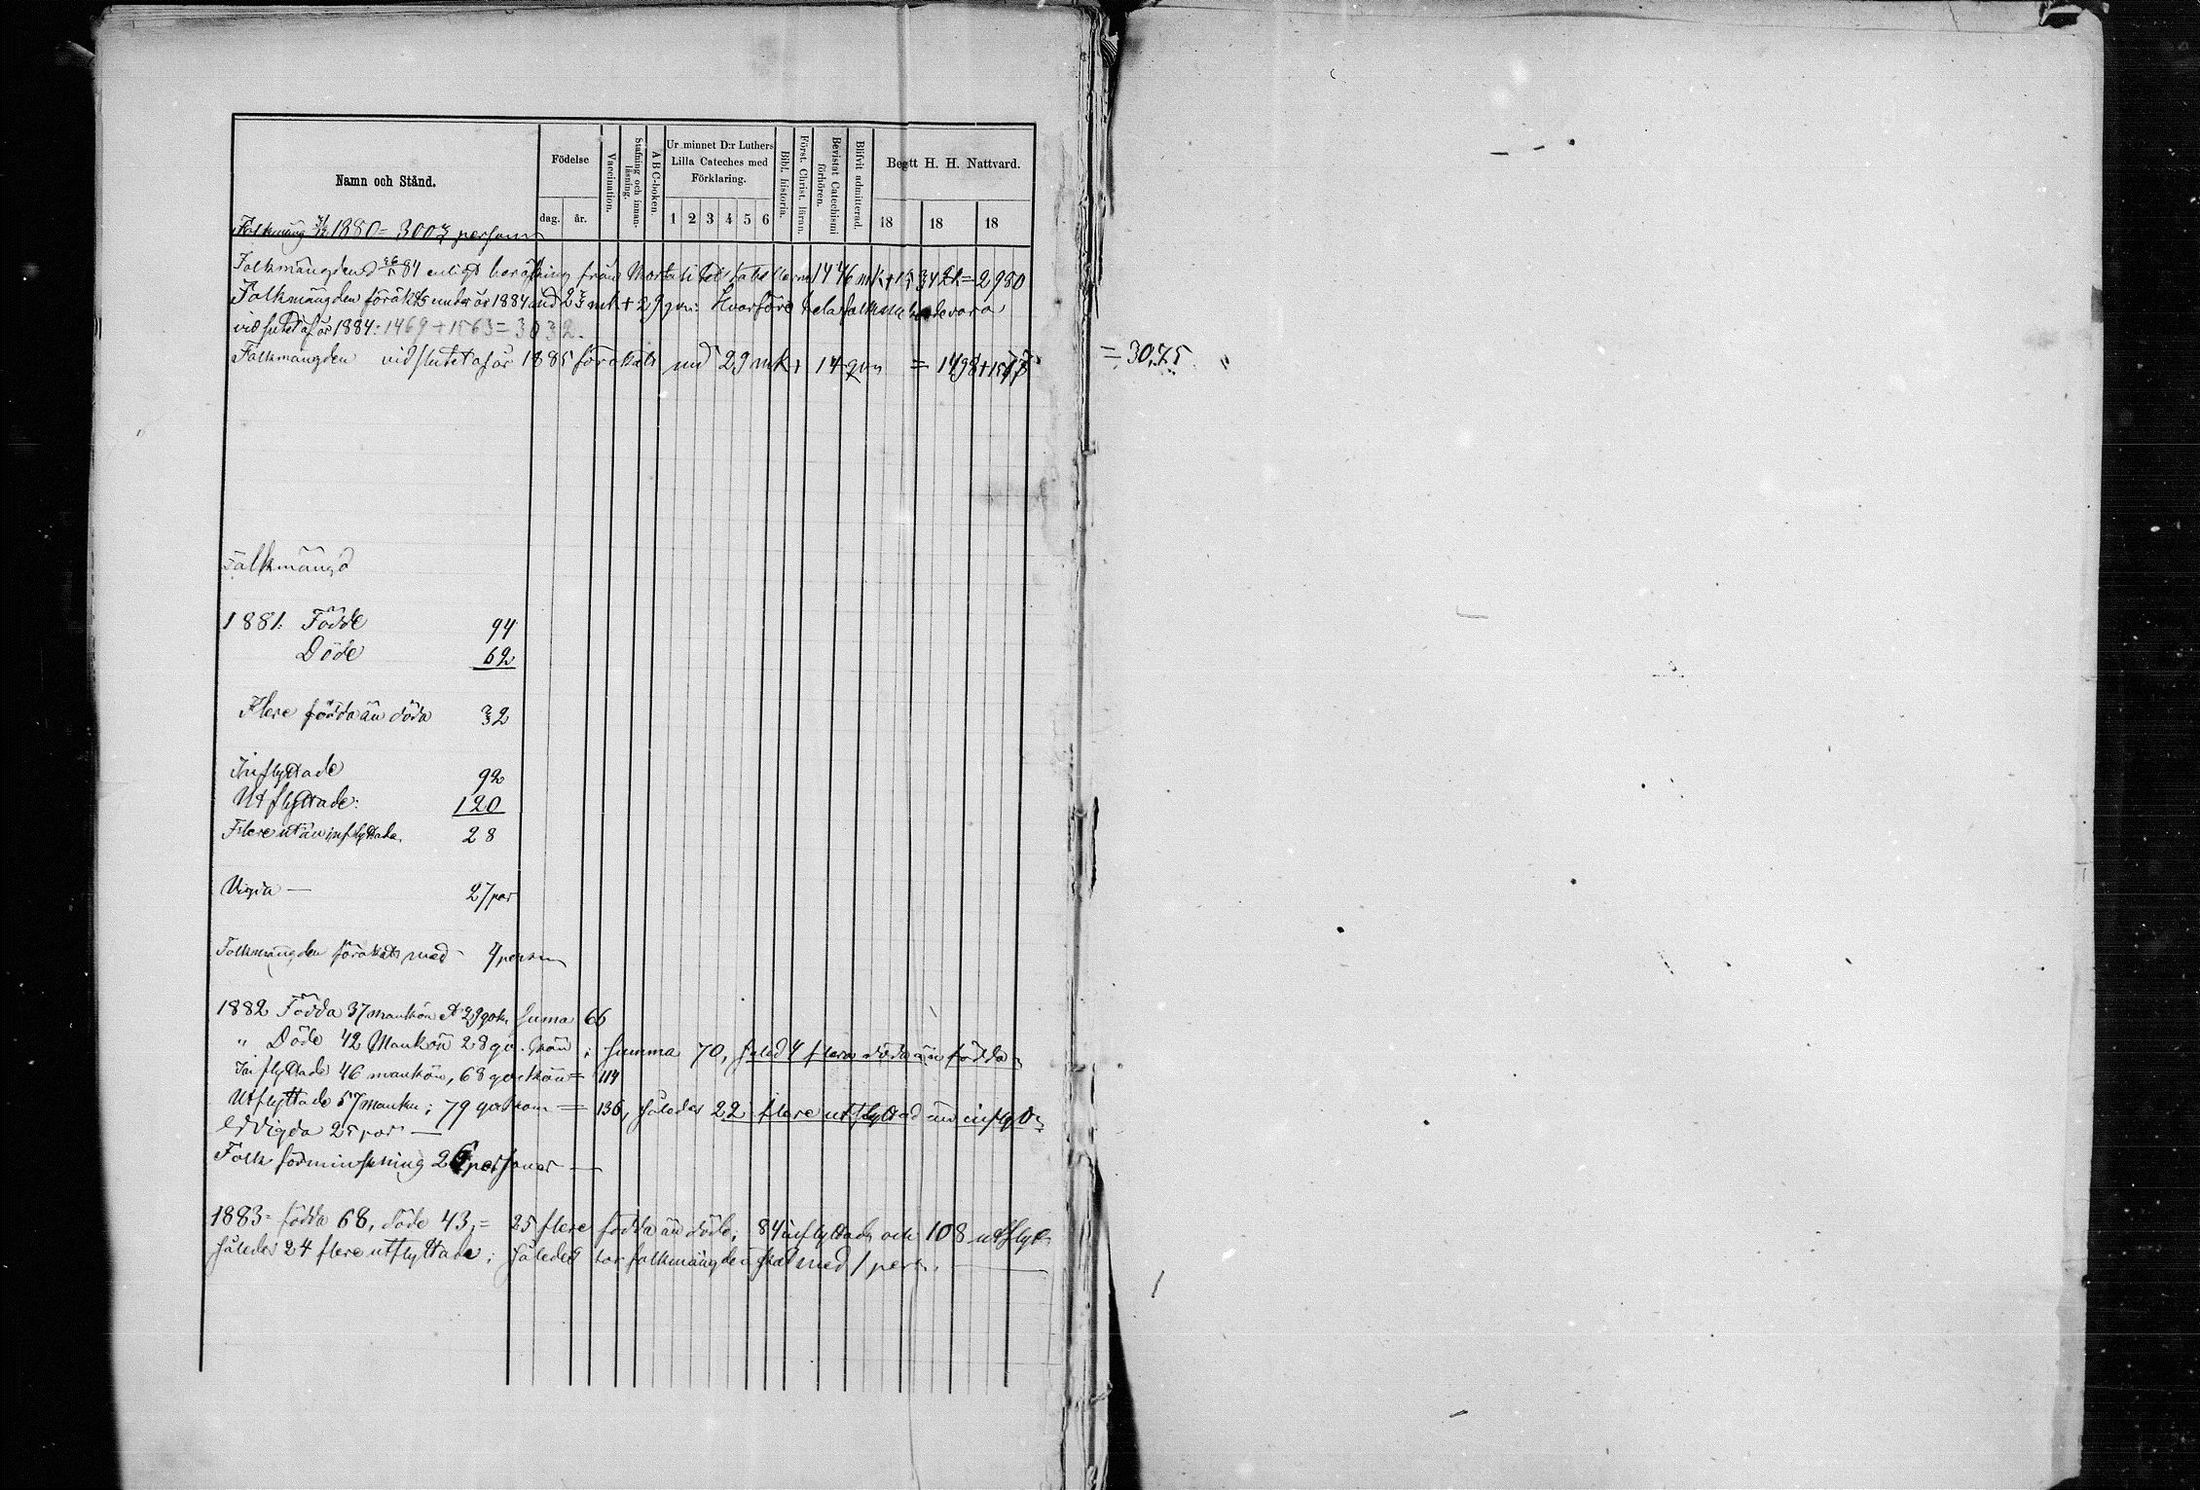 Namn och Stånd.
Födelse
dag.
år.
Vaccination.
Stafning och innan-
läsning.
A B C-boken.
Ur minnet D:r Luthers
Lilla Cateches med
Förklaring.
1 2 3 4 5 6
Bibl. historia.
Först. Christ. läran.
Bevistat Catechismi
förhören.
Blifvit admitterad.
Begtt H. H. Nattvard.
18 18 18
Folkmäng 1880 = 3003 person
Folkmängden 84 enligt beräkning från 1446 mk + 1534 = 2980
Folkmängden förökts under år 1884 med 23 mk + 29 qvn: Hvarföre hela folkm vara
vid slutet af år 1884: 1469 + 1563 = 3032.
Folkmängden vid slutet af år 1885 förökats med 29 mk + 14 qvn = 1498 + 1577 = 3075
Folkmängd
1881. Födde 94
Döde 62
Flere födda än döda 32
Inflyttade 92
Utflyttade: 120
Flere ut än inflyttade 28
Vigda — 27 par
Folkmängden förökats med 4 person
1882 Födda 37 mankön 29 qvk. Suma 66
" Döde 42 Mankön 28 qv. kön; Summa 70, Såled 4 flera döda än födda
Inflyttade 46 mankön, 68 qvinkön = 114
Utflyttade 57 mankn; 79 qvinkön = 136, Således 22 flere utflyttad än inflytt
Vigda 25 par —
Folk förminskning 26 personer —
1883 = födda 68, döde 43, = 25 flere födda än döde; 84 inflyttade och 108 utflyt
således 24 flere utflyttade; således har folkmängden ökat med 1 pers. —